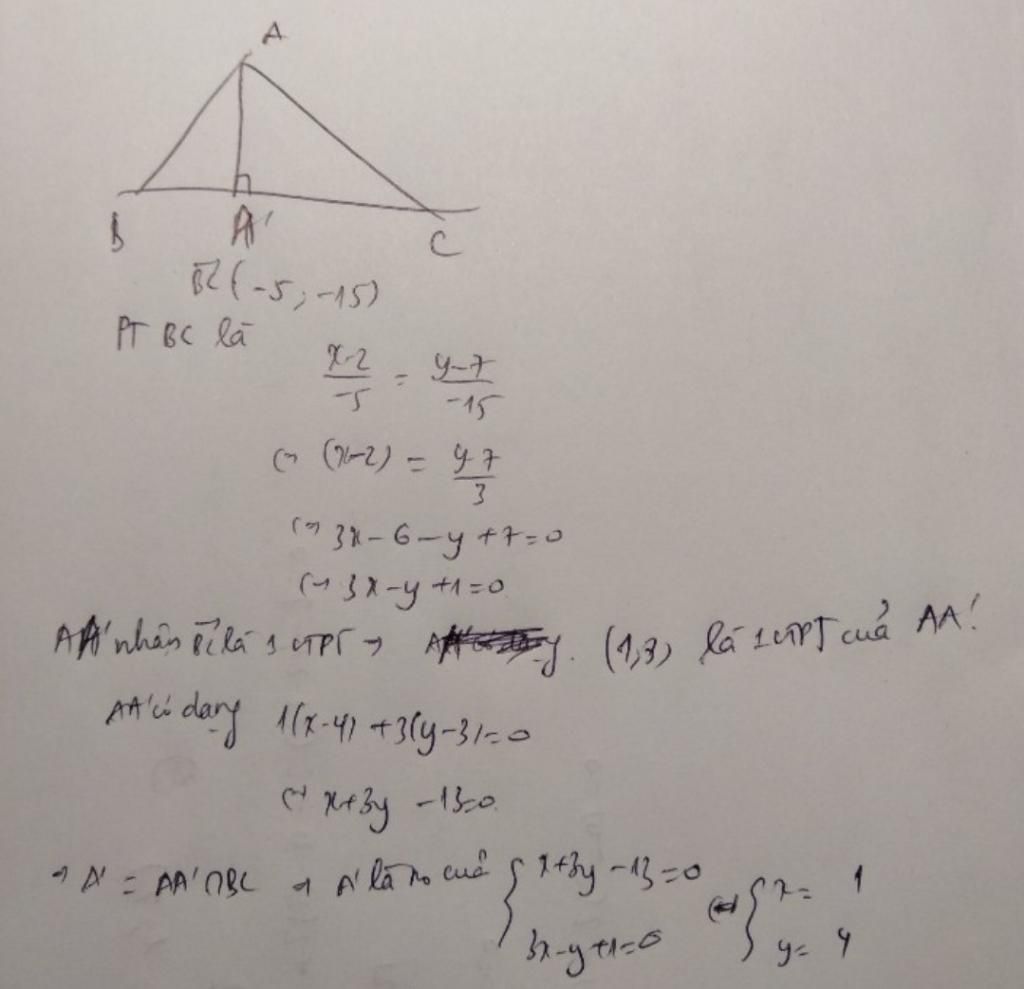 A
B A' C
BC (-5; -15)
PT BC là
x-2/-5 = y-7/-15
(=) (x-2) = y-7/3
(=) 3x - 6 - y + 7 = 0
(=) 3x - y + 1 = 0
AA' nhận BC là 1 VTPT → (1,3) là 1 VTPT của AA'
AA' có dạng 1(x-4) + 3(y-3) = 0
(=) x + 3y - 13 = 0
→ A' = AA' ∩ BC → A' là no của { x + 3y - 13 = 0 (=) { x = 1
3x - y + 1 = 0 y = 4